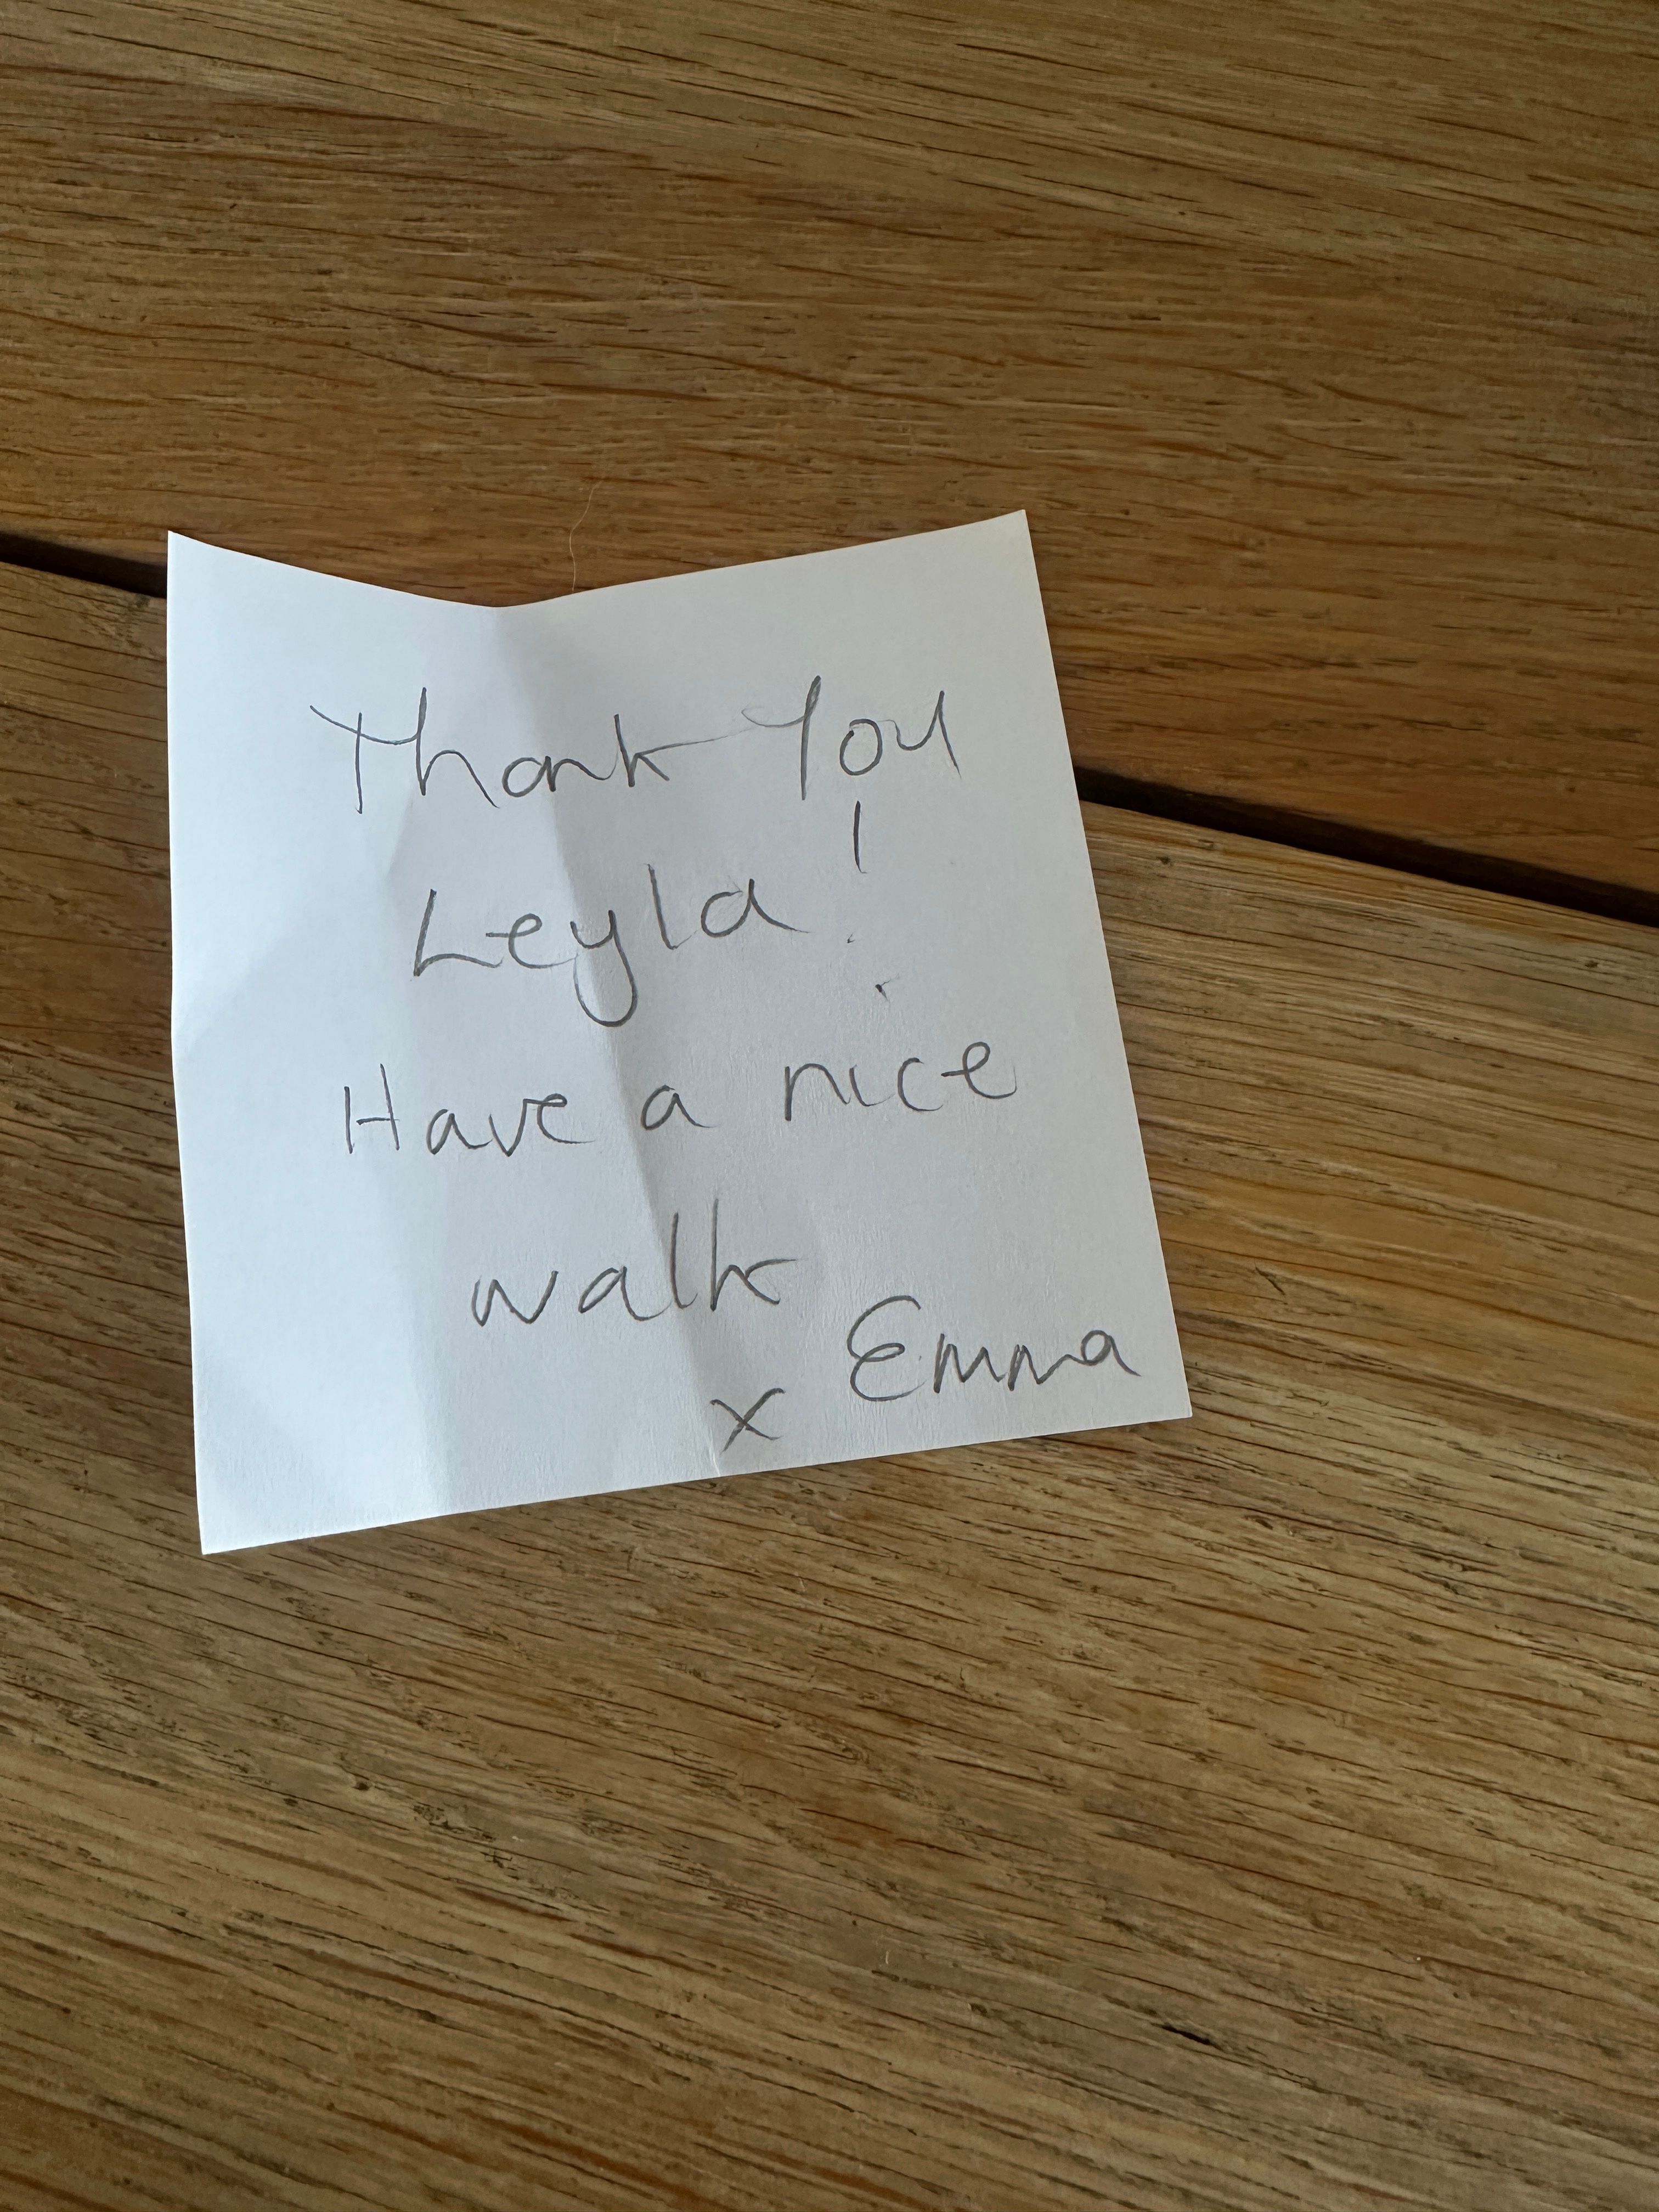 Thank You
Leyla!
Have a nice
walk
Emma
x